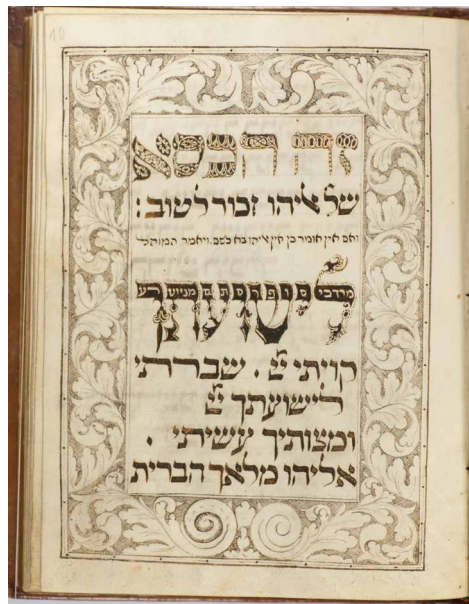 10
זה הכסא
של ﭏיהו זכור לטוב :
ואם אין אומר כן אין ﭏיהו בא לשם . ויאמר המוהל
לישועתך
קויתי יי . שברתי
לישועתך יי
ומצותיך עשיתי .
אליהו מלאך הברית